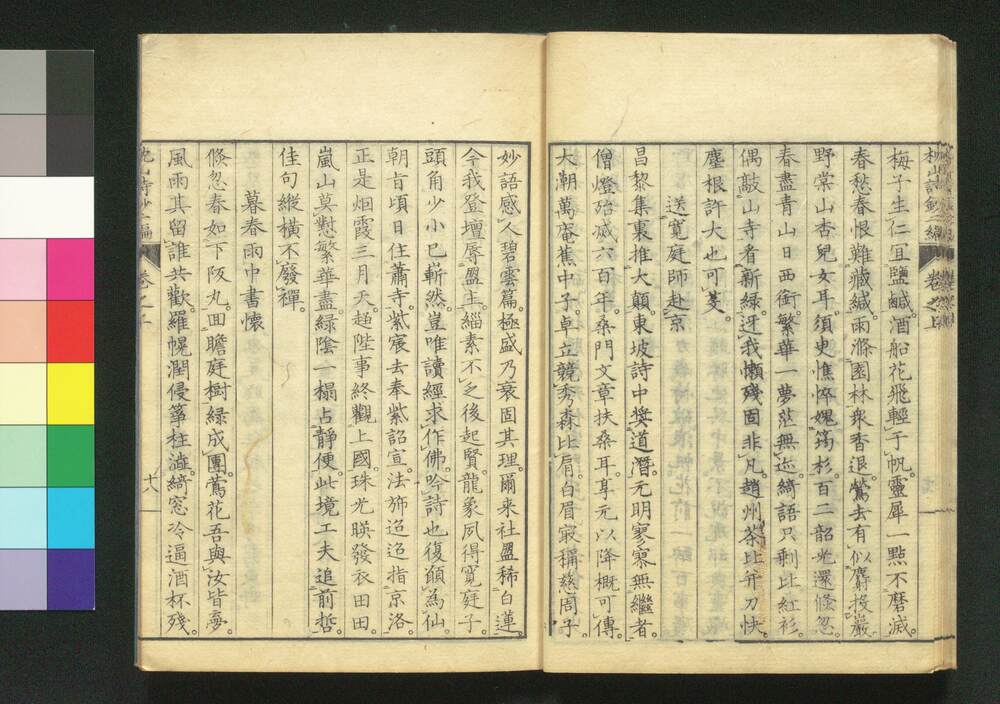 枕山詩鈔二編　卷之上
梅子生仁宜鹽鹹。酒船花飛輕于帆。靈犀一點不磨滅。
春愁春恨難藏緘。雨滌園林衆香退。鶯去有似麝投巖。
野棠山杏兒女耳。須臾憔悴媿筠杉。百二韶光還倏忽。
春盡青山日西銜。繁華一夢茫無迹。綺語只剩比紅衫。
偶敲山寺看新綠。迓我懶殘固非凡。趙州茶比并刀快。
塵根許大也可芟。
送寬庭師赴京
昌黎集裏推大顛。東坡詩中奬道潛。元明寥寥無繼者。
僧燈殆滅六百年。桑門文章扶桑耳。享元以降概可傳。
大潮萬庵蕉中子。卓立競秀森比肩。白眉最稱慈周子。
妙語感人碧雲篇。極盛乃衰固其理。爾來社盟稀白蓮。
今我登壇辱盟主。緇素不乏後起賢。龍象夙得寬庭子。
頭角少小已嶄然。豈唯讀經求作佛。吟詩也復願為仙。
朝旨頃日住蕭寺。紫宸去奉紫詔宣。法斾迢迢指京洛。
正是烟霞三月天。趨陛事終觀上國。珠光暎發衣田田。
嵐山莫愬繁華盡。綠陰一榻占靜便。此境工夫追前哲。
佳句縱橫不廢禪。
暮春雨中書懷
倏忽春如下阪丸。回瞻庭樹綠成團。鶯花吾與汝皆夢。
風雨其留誰共歡。羅幌潤侵箏柱澁。綺窓冷逼酒杯殘。
卷之上　十八